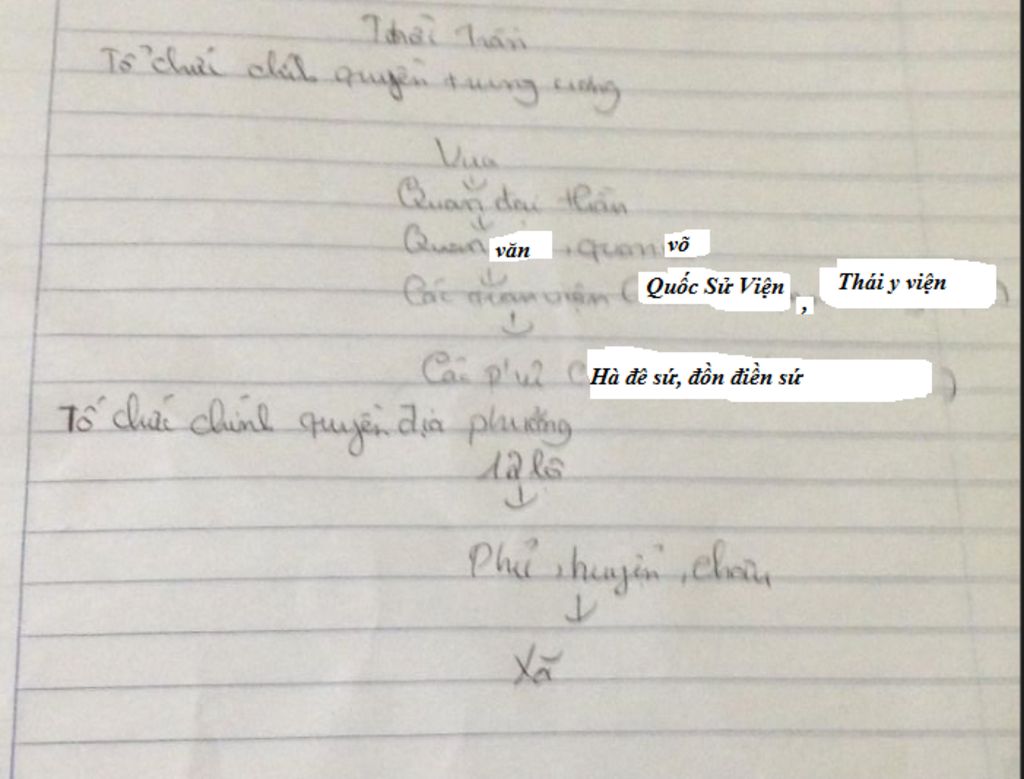 Thời Trần
Tổ chức chính quyền trung ương
Vua
Quan đại thần
Quan văn , quan võ
Các quan viện ( Quốc Sử Viện , Thái y viện )
Các phủ ( Hà đê sứ, đồn điền sứ )
Tổ chức chính quyền địa phương
12 lộ
Phủ , huyện , châu
Xã